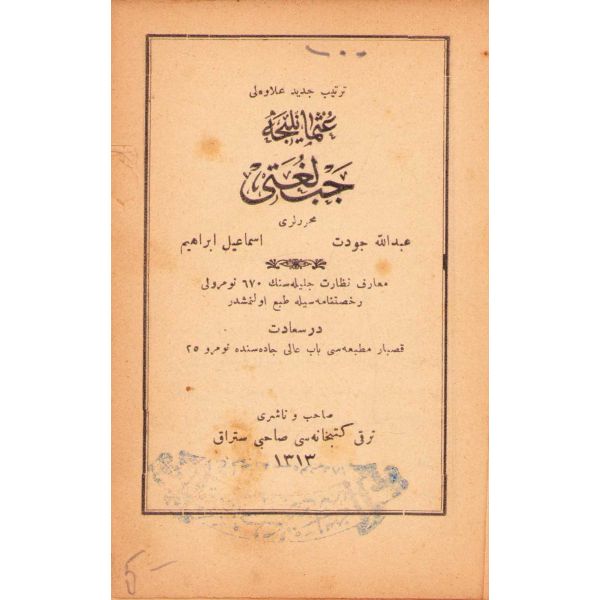 ١٠٠
ترتيب جديد علاوه‌لى
عثمانليجه
جيب لغتى
محررلرى
عبدالله جودت اسماعيل ابراهيم
معارف نظارت جليله‌سنك ٦٧٠ نومرولى
رخصتنامه‌سيله طبع اولنمشدر
درسعادت
قصبار مطبعه‌سى باب عالى جاده‌سنده نومرو ٢٥
صاحب و ناشرى
ترقى كتبخانه‌سى صاحبى ستراق
١٣١٣